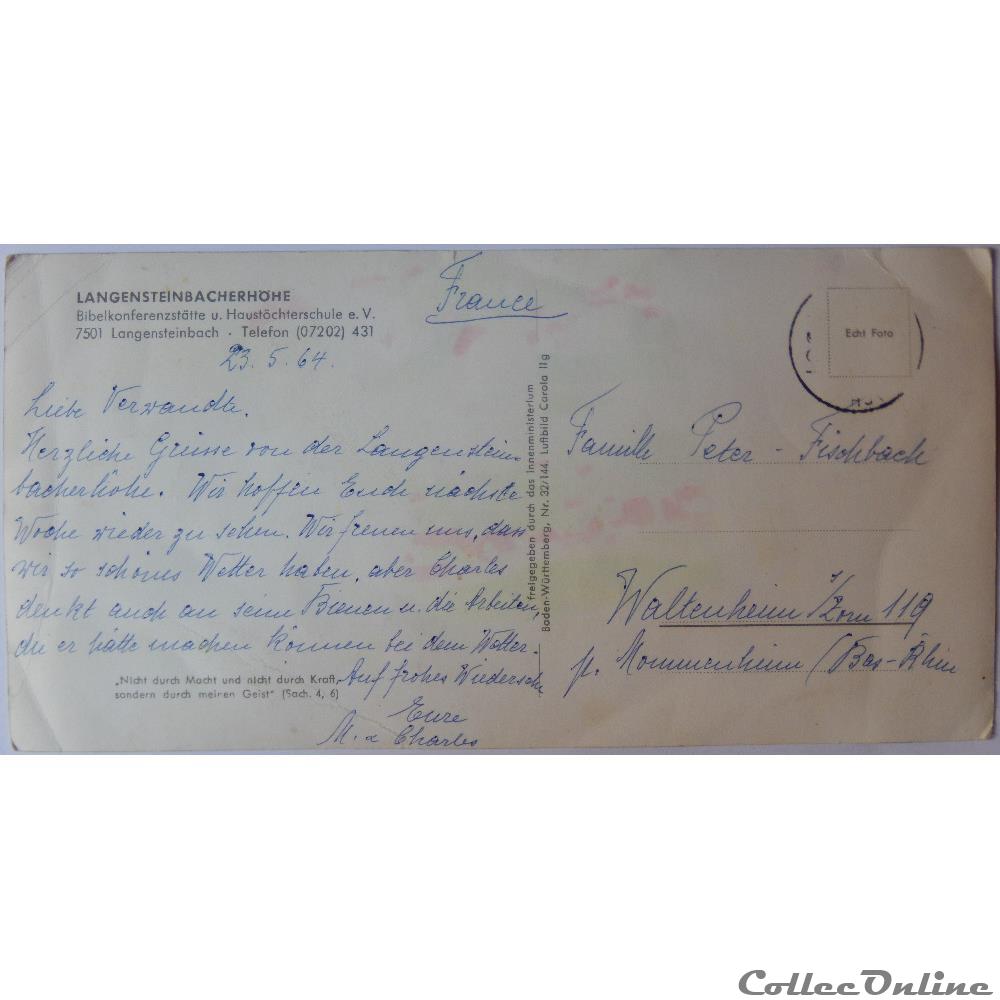 LANGENSTEINBACHERHÖHE
Bibelkonferenzstätte u. Haustöchterschule e. V.
7501 Langensteinbach · Telefon (07202) 431
23. 5. 64.
Liebe Verwandte.
Herzliche Grüsse von der Langenstein-
bacherhöhe. Wir hoffen Euch nächste
Woche wieder zu sehen. Wir freuen uns, dass
wir so schönes Wetter haben, aber Charles
denkt auch an seine Bienen u. die Arbeiten
die er hätte machen können bei dem Wetter.
Auf frohes Wiedersehn
Eure
M. & Charles
„Nicht durch Macht und nicht durch Kraft,
sondern durch meinen Geist" (Sach. 4, 6)
freigegeben durch das Innenministerium
Baden-Württemberg, Nr. 32/144. Luftbild Carola 11g
France
Echt Foto
Famille Peter - Fischbach
Waltenheim /Zorn 119
p. Mommenheim (Bas-Rhin
CollecOnline